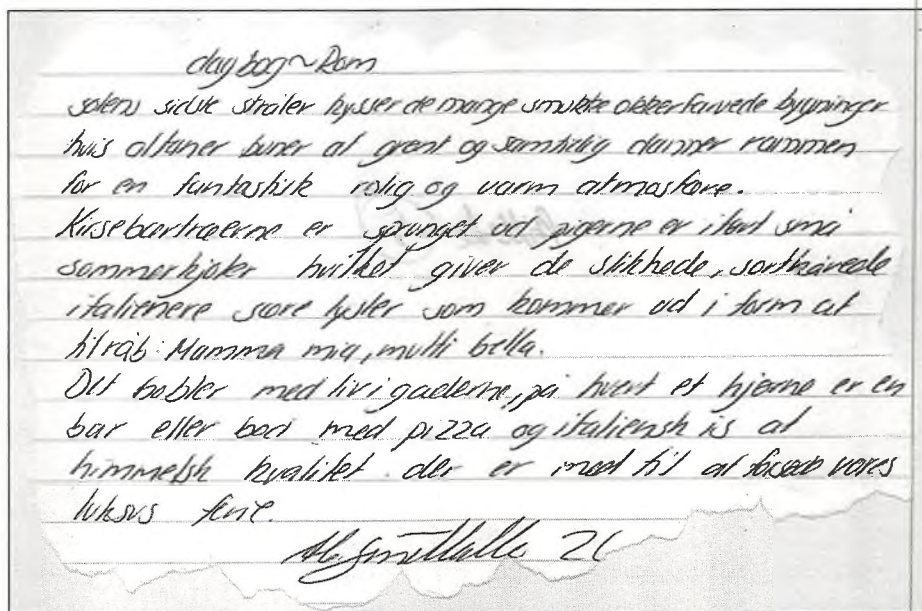 dagbog ~ Rom
solens sidste stråler kysser de mange smukke okkerfarvede bygninger
hvis altaner buner af grønt og samtidig danner rammen
for en fantastisk rolig og varm atmosfære.
Kirsebærtræerne er sprunget ud pigerne er iført små
sommerkjoler hvilket giver de slikhede, sorthårede
italienere store lyster som kommer ud i form af
tilråb: Mamma mia, multi bella.
Det bobler med liv i gaderne, på hvert et hjørne er en
bar eller bod med pizza og italiensk is af
himmelsk kvalitet. der er med til at forsøde vores
luksus ferie.